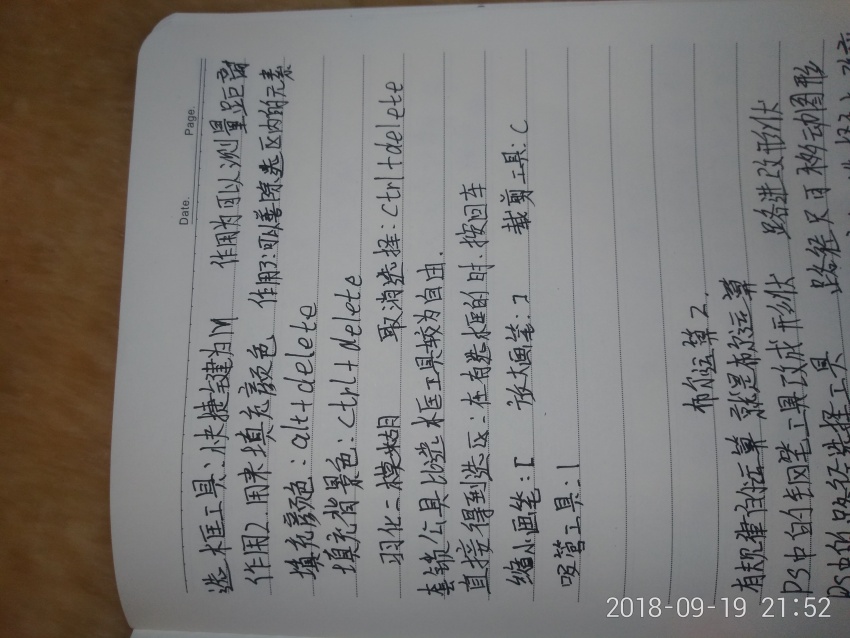 Date.  Page.
选框工具：快捷键为M  作用为可以测量距离
作用2.用来填充颜色  作用3：可以删除选区内的元素
填充颜色：alt+delete
填充背景色：ctrl+delete
羽化=模糊  取消选择：ctrl+delete
套锁工具比选框工具较为自由.
直接得到选区：在有选框的时.按回车
缩小画笔：[  扩大画笔：]  裁剪工具：C
吸管工具：l
布尔运算2.
有规律的运算 就是布尔运算
PS中的钢笔工具改成形状  路进改形状
PS中的路径选择工具  路径只可移动图形
2018-09-19 21:52